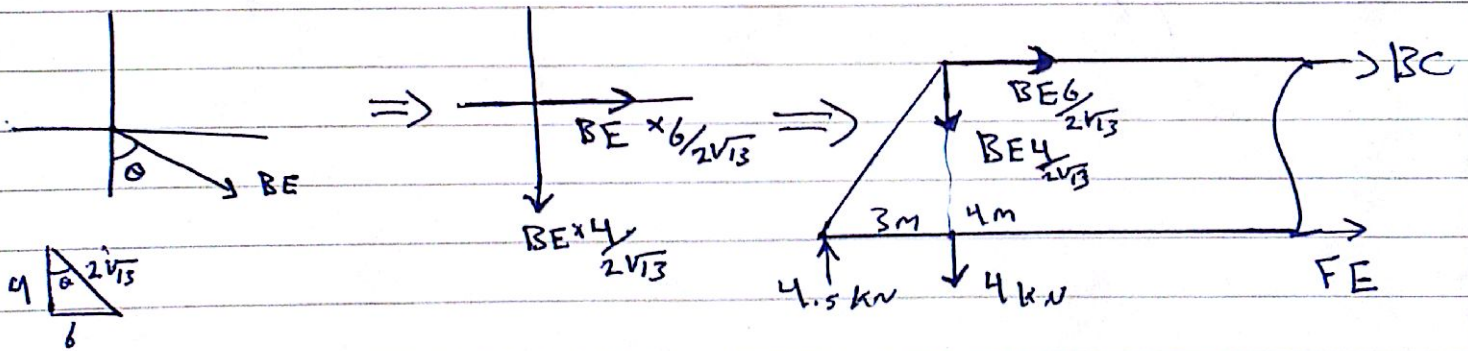 θ
BE
4
θ
2√13
6
⇒
BE × 6/2√13
BE × 4/2√13
⇒
BC
BE6/2√13
BE4/2√13
3m
4m
4.5 kN
4 kN
FE